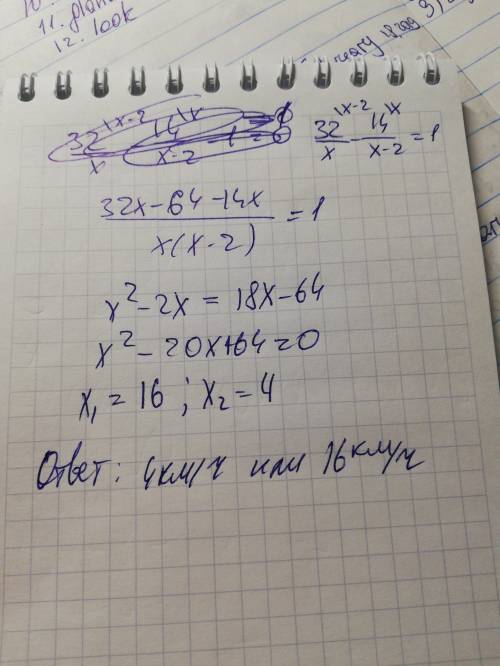 11. plan
12. look
32^{\x-2}/x - 14^{\x}/(x-2) = 1
(32x-64-14x)/(x(x-2)) = 1
x² - 2x = 18x - 64
x² - 20x + 64 = 0
x₁ = 16 ; x₂ = 4
Ответ: 4км/ч или 16км/ч